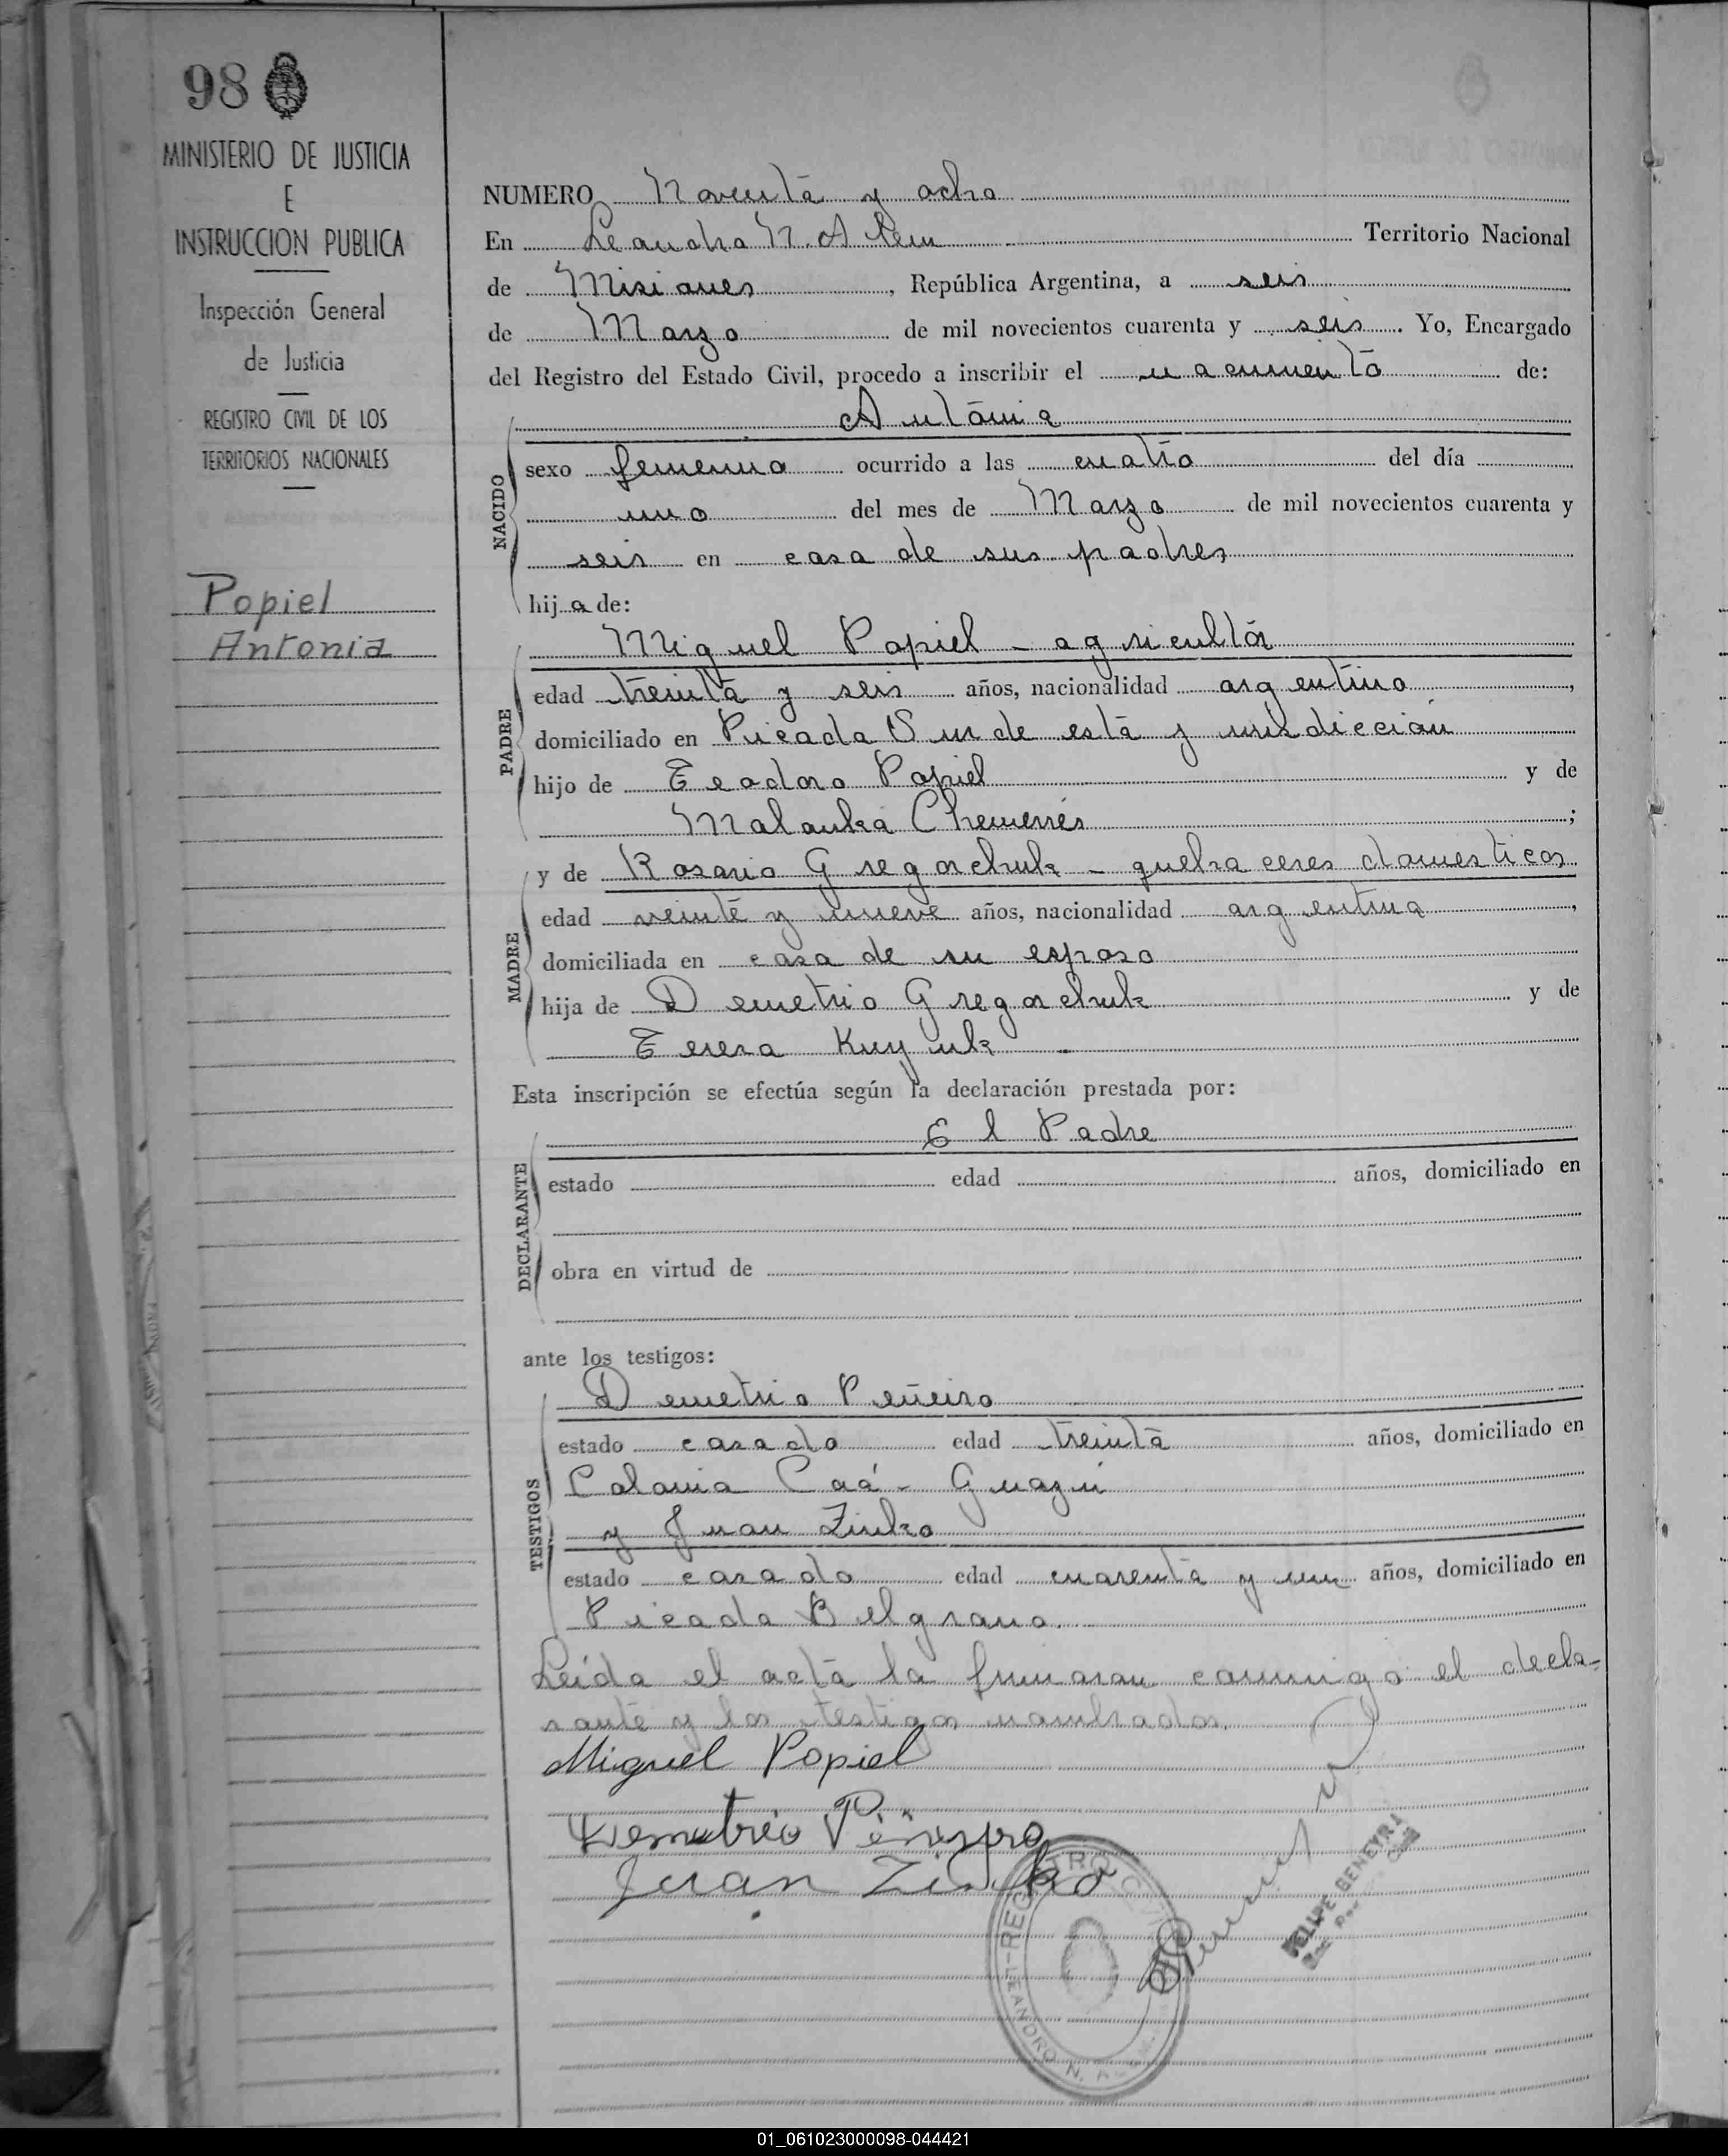 98
MINISTERIO DE JUSTICIA
E
INSTRUCCION PUBLICA
Inspección General
de Justicia
REGISTRO CIVIL DE LOS
TERRITORIOS NACIONALES
Popiel
Antonia
NUMERO Noventa y ocho
En Leandro N. Alem Territorio Nacional
de Misiones, República Argentina, a seis
de Marzo de mil novecientos cuarenta y seis. Yo, Encargado
del Registro del Estado Civil, procedo a inscribir el nacimiento de:
Antonia
NACIDO
sexo femenino ocurrido a las cuatro del día
uno del mes de Marzo de mil novecientos cuarenta y
seis en casa de sus padres
hija de:
PADRE
Miguel Popiel - agricultor
edad treinta y seis años, nacionalidad argentino,
domiciliado en Picada Sur de esta jurisdicción
hijo de Teodoro Popiel y de
Malanka ;
MADRE
y de Rosario Gregorchuk - quehaceres domesticos
edad veinte y nueve años, nacionalidad argentina,
domiciliada en casa de su esposo
hija de Demetrio Gregorchuk y de
Teresa Kuyuk
Esta inscripción se efectúa según la declaración prestada por:
El Padre
DECLARANTE
estado edad años, domiciliado en
obra en virtud de
ante los testigos:
TESTIGOS
Demetrio Peñeiro
estado casado edad treinta años, domiciliado en
Colonia Caá-Guazú
y Juan Zinko
estado casado edad cuarenta y un años, domiciliado en
Picada Belgrano.
Leída el acta la firmaron conmigo el decla-
rante y los testigos nombrados.
Miguel Popiel
Demetrio Piñeyro
Juan Zinko
REGISTRO CIVIL
LEANDRO N. ALEM
FELIPE GENEYRA
01_061023000098-044421